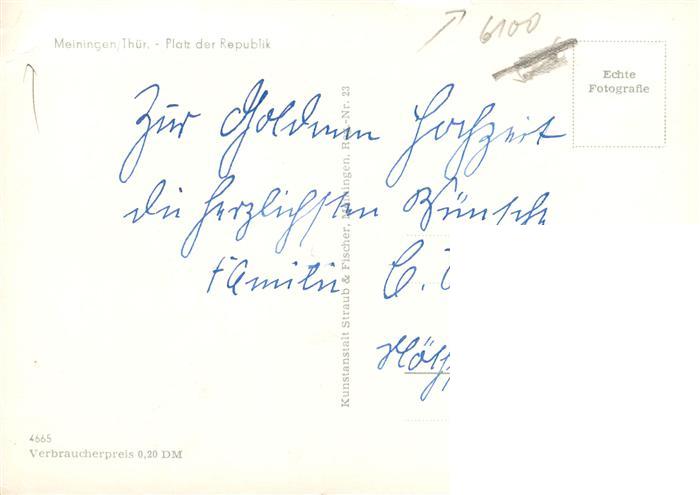 6100
Meiningen/Thür. - Platz der Republik
Echte
Fotografie
Zur Goldenen Hochzeit
die herzlichsten Wünsche
Familie C.
Kunstanstalt Straub & Fischer, Meiningen, -Nr. 23
4665
Verbraucherpreis 0,20 DM